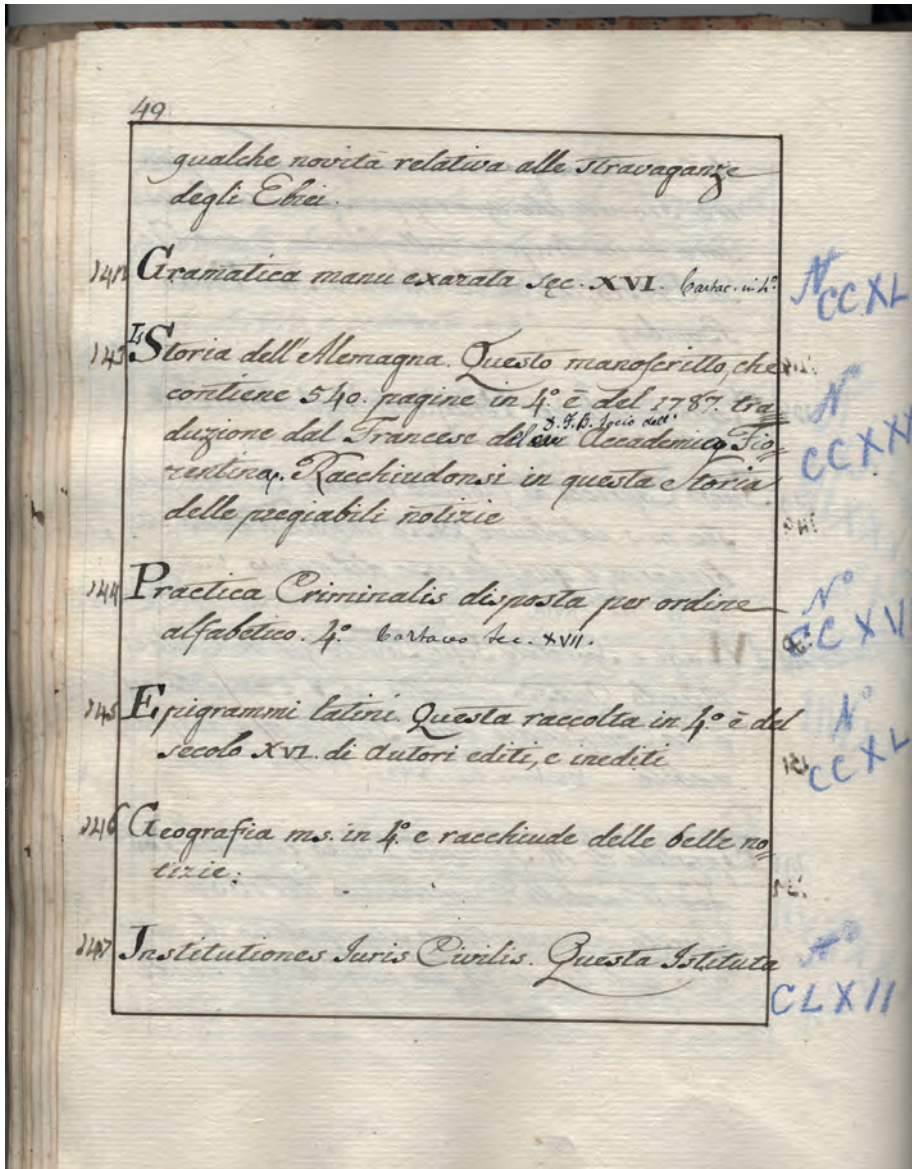 49
qualche novità relativa alle stravaganze
degli Ebrei.
142 Gramatica manu exarata sęc. XVI. Cartac. in 4.º
Nº CCXL
143 LStoria dell'Alemagna. Questo manoscritto, che
contiene 540. pagine in 4.º è del 1787. tra=
Nº
S.F.B. Socio dell'
duzione dal Francese del Accademico Fio=
CCXXX
rentina. Racchiudonsi in questa Storia
delle pregiabili notizie
144 Practica Criminalis disposta per ordine
Nº
alfabetico. 4.º Cartaceo Sec. XVII.
CCXV
145 Epigrammi latini. Questa raccolta in 4.º è del
Nº
secolo XVI. di Autori editi, e inediti
CCXL
146 Geografia ms. in 4.º e racchiude delle belle no=
tizie.
147 Institutiones Iuris Civilis. Questa Istituta
Nº
CLXII